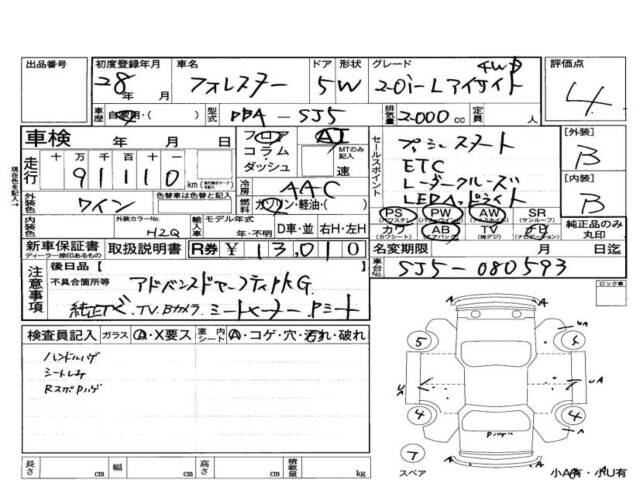 出品番号 初度登録年月 車名 ドア 形状 グレード 評価点
28年 月 フォレスター 5 W 2.0i-Lアイサイト 4WD 4
車歴 自家用・( ) 型式 DBA-SJ5 排気量 2000cc 定員 人
車検 年 月 日 フロア AT
走行 十 万 千 百 十 一 コラム・ MTのみ記入
91110 km ダッシュ 速
セールスポイント プッシュスタート
ETC
レーダークルーズ
LEDヘッドライト
[外装] B
[内装] B
外装色 ワイン 冷房 AAC
色替車は色替色 燃料 ガソリン・軽油・( )
内装色 外装カラーNo. H2Q 輸入車 モデル年式 年 D車・並 右H・左H
PS PW AW SR
(パワステ) (パワーウィンドウ) (サンルーフ)
カワ AB TV ナビ
(カワシート) (エアバック) (地デジ) (ナビゲーション)
純正品のみ丸印
新車保証書 取扱説明書 R券 ¥13,010 名変期限 月 日迄
ディーラー捺印あるもの
注意事項 後日品【 】 車台No. SJ5-080593
不具合箇所等 アドバンスドセーフティPKG.
純正ナビ.TV.Bカメラ.シートヒーター.Pシート
ロック車
検査員記入 ガラス A・X要ス 室内シート A・コゲ・穴・汚れ・破れ
ハンドルハゲ
シートしみ
5 5
A A
4 4
7
スペア 小A有・小U有
長さ cm 幅 cm 高さ cm 積載量 kg
現在色を記入→